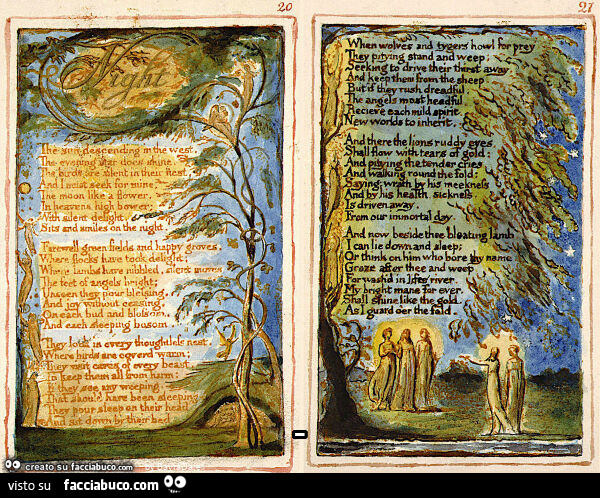 20
Night
The sun descending in the west.
The evening star does shine.
The birds are silent in their nest.
And I must seek for mine.
The moon like a flower,
In heavens high bower;
With silent delight,
Sits and smiles on the night.
Farewell green fields and happy groves,
Where flocks have took delight;
Where lambs have nibbled, silent moves
The feet of angels bright;
Unseen they pour blessing,
And joy without ceasing,
On each bud and blossom,
And each sleeping bosom
They look in every thoughtless nest
Where birds are coverd warm;
They visit caves of every beast,
To keep them all from harm;
If they see any weeping,
That should have been sleeping
They pour sleep on their head
And sit down by their bed
21
When wolves and tygers howl for prey
They pitying stand and weep;
Seeking to drive their thirst away
And keep them from the sheep
But if they rush dreadful
The angels most heedful
Recieve each mild spirit
New worlds to inherit.
And there the lions ruddy eyes,
Shall flow with tears of gold:
And pitying the tender cries
And walking round the fold:
Saying; wrath by his meekness
And by his health, sickness,
Is driven away,
From our immortal day.
And now beside thee bleating lamb,
I can lie down and sleep;
Or think on him who bore thy name
Graze after thee and weep
For wash'd in lifes river
My bright mane for ever,
Shall shine like the gold,
As I guard o'er the fold.
creato su facciabuco.com
visto su facciabuco.com